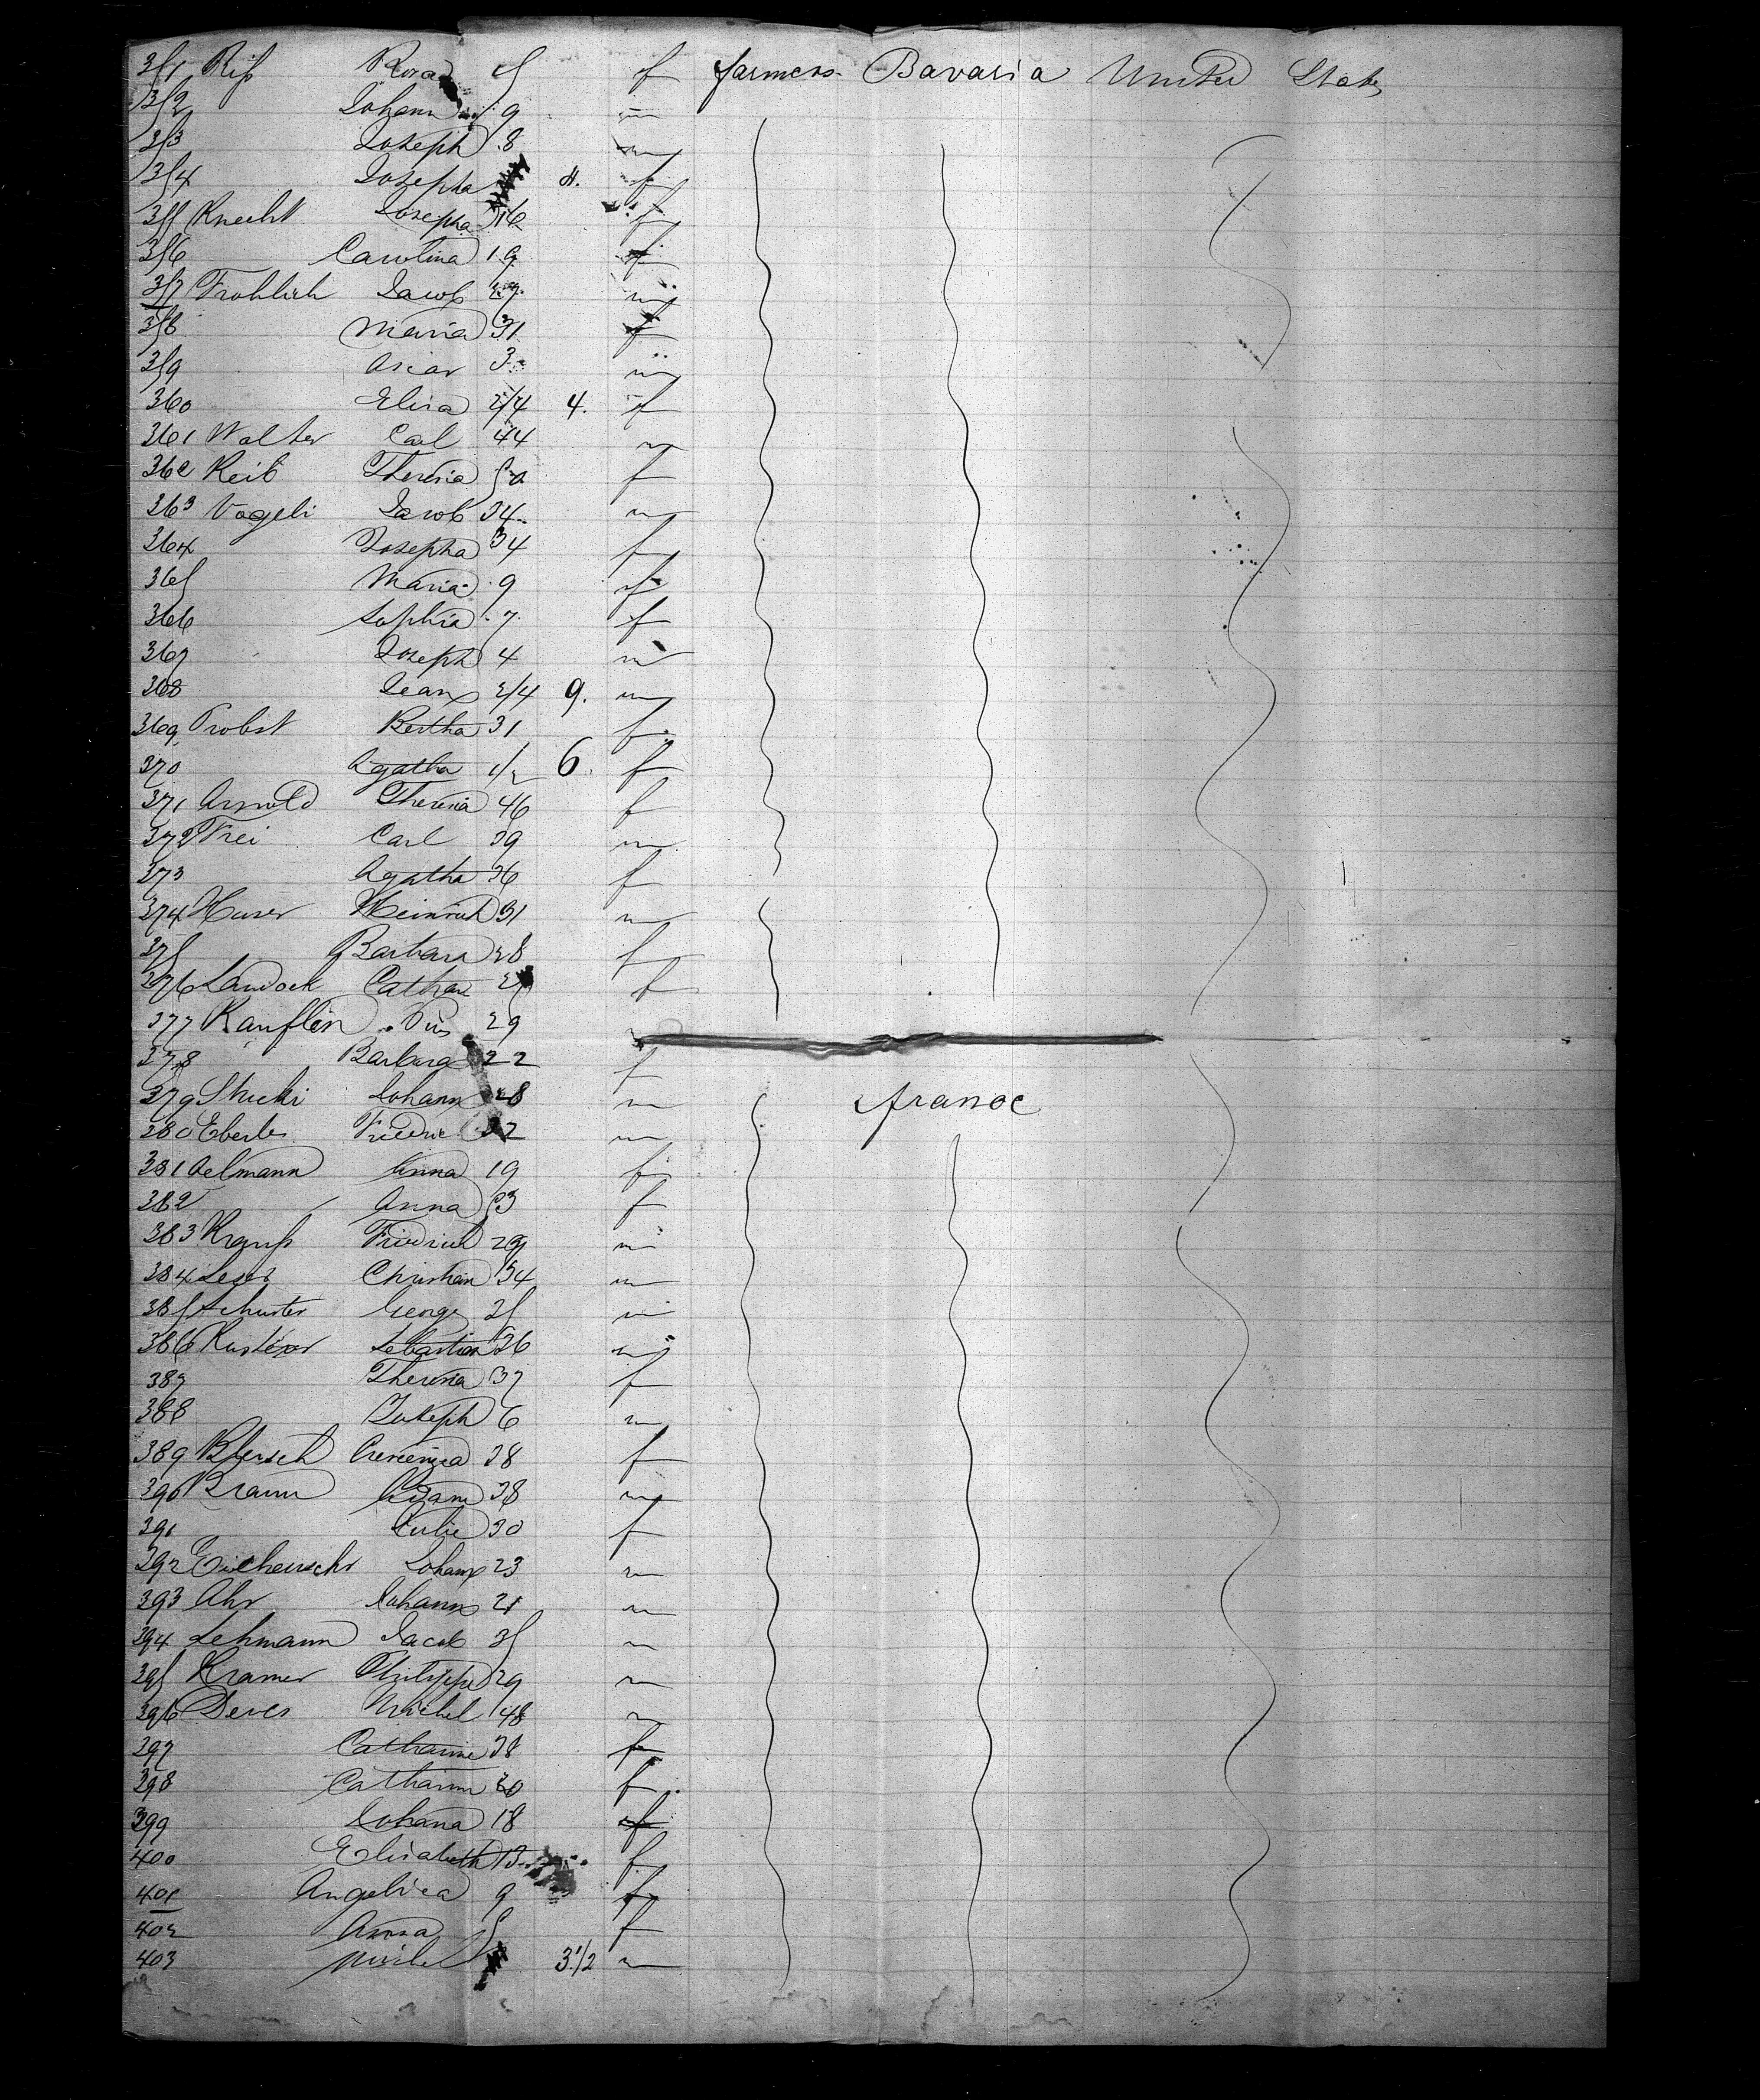 351 Riß Rosa 5 f farmers Bavaria United States
352 Johann 9 m
353 Joseph 8 m
354 Josepha 4. f
355 Knecht Josepha 16 f
356 Carolina 19 f
357 Frohlich Jacob 27 m
358 Maria 31 f
359 Oscar 3 m
360 Elisa 2/4 4. f
361 Walter Carl 44 m
362 Keib Theresia 50 f
363 Vogeli Jacob 34 m
364 Josepha 34 f
365 Maria 9 f
366 Sophia 7 f
367 Joseph 4 m
368 Jean 2/4 9. m
369 Probst Bertha 31 f
370 Agatha 1/2 6. f
371 Arnold Theresia 46 f
372 Frei Carl 39 m
373 Agatha 36 f
374 Hauser Heinrich 31 m
375 Barbara 28 f
376 Landock Cathar f
377 Kauflin Pius 29
378 Barbara 22 f
379 Stucki Johann 28 m france
380 Eberle Friedric 32 m
381 Aelmann Anna 19 f
382 Anna 53 f
383 Krauß Friedrich 29 m
384 Leser Christian 54 m
385 Schuster George 25 m
386 Kusterer Sebastian 36 m
387 Theresia 37 f
388 Joseph 6 m
389 Blersch Crescenzia 28 f
390 Braun Adam 38 m
391 Julie 30 f
392 Johann 23 m
393 Ahr Johann 21 m
394 Lehmann Jacob 35 m
395 Kramer Philippe 29 m
396 Deves Michel 48 m
397 Catharine 38 f
398 Catharine 20 f
399 Johana 18 f
400 Elisabeth 13 f
401 Angelica 9 f
402 Anna 5 f
403 Michel 3 1/2 m